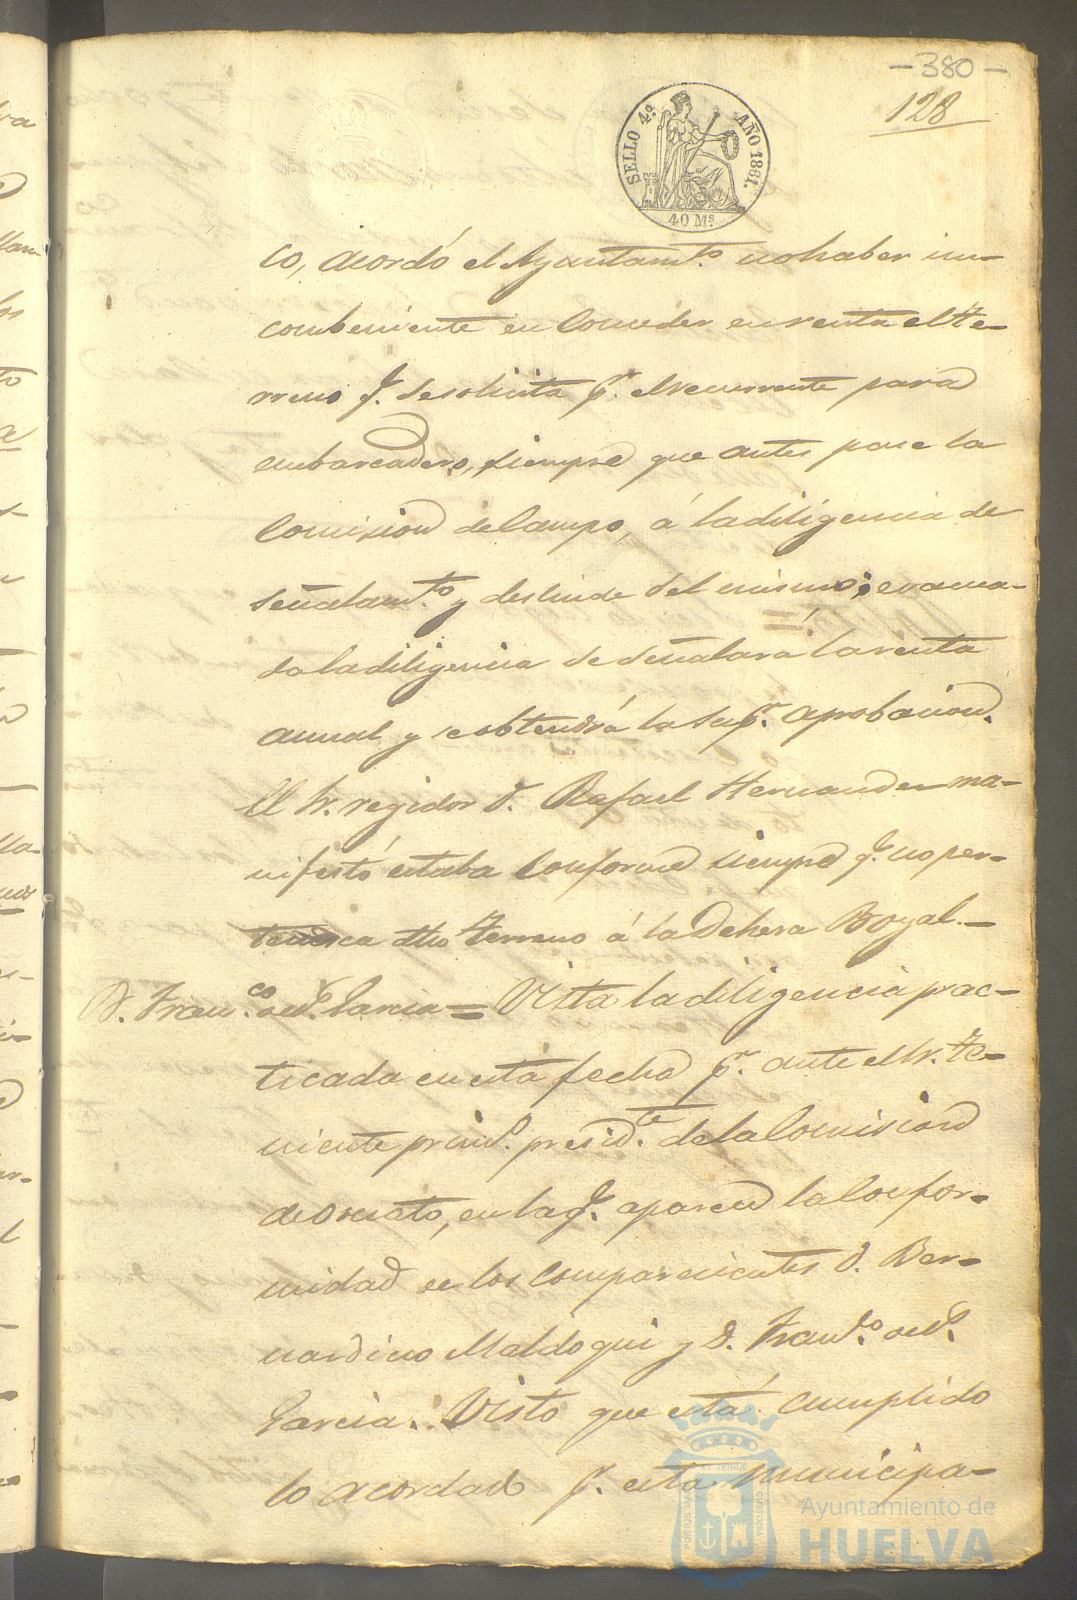 -380-
128
SELLO 4.º AÑO 1861.
40 Ms.
co, acordó el Ayuntamto. no haber in-
combeniente en conceder en renta el te-
rreno q. se solicita pr. el recurrente para
embarcadero, siempre que antes pase la
Comision de Campo, á la diligencia de
señalamto. y deslinde del mismo; evacua-
da la diligencia se señalará la renta
anual y se obtendrá la Supr. aprobacion.
El Sr. regidor D. Rafael Hernandez ma-
nifestó estaba conforme siempre q. no per-
tenezca dho terreno á la Dehesa Boyal.-
D. Franco. García = Vista la diligencia prac-
ticada en esta fecha pr. ante el Sr. Te-
niente primo. presidte. de la Comision
de Ornato, en la q. aparece la Confor-
midad de los comparecientes D. Ber-
nardino Maldoqui y D. Franco.
García. Visto que está cumplido
lo acordado pr. esta municipa-
PORTUS MARIS ET TERRAE CUSTODIA
Ayuntamiento de
HUELVA